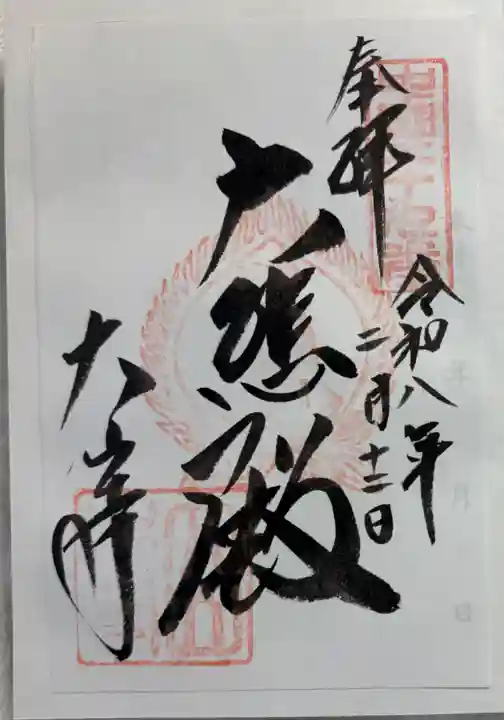 奉拜
令和八年
二月十二日
大悲殿
大山寺